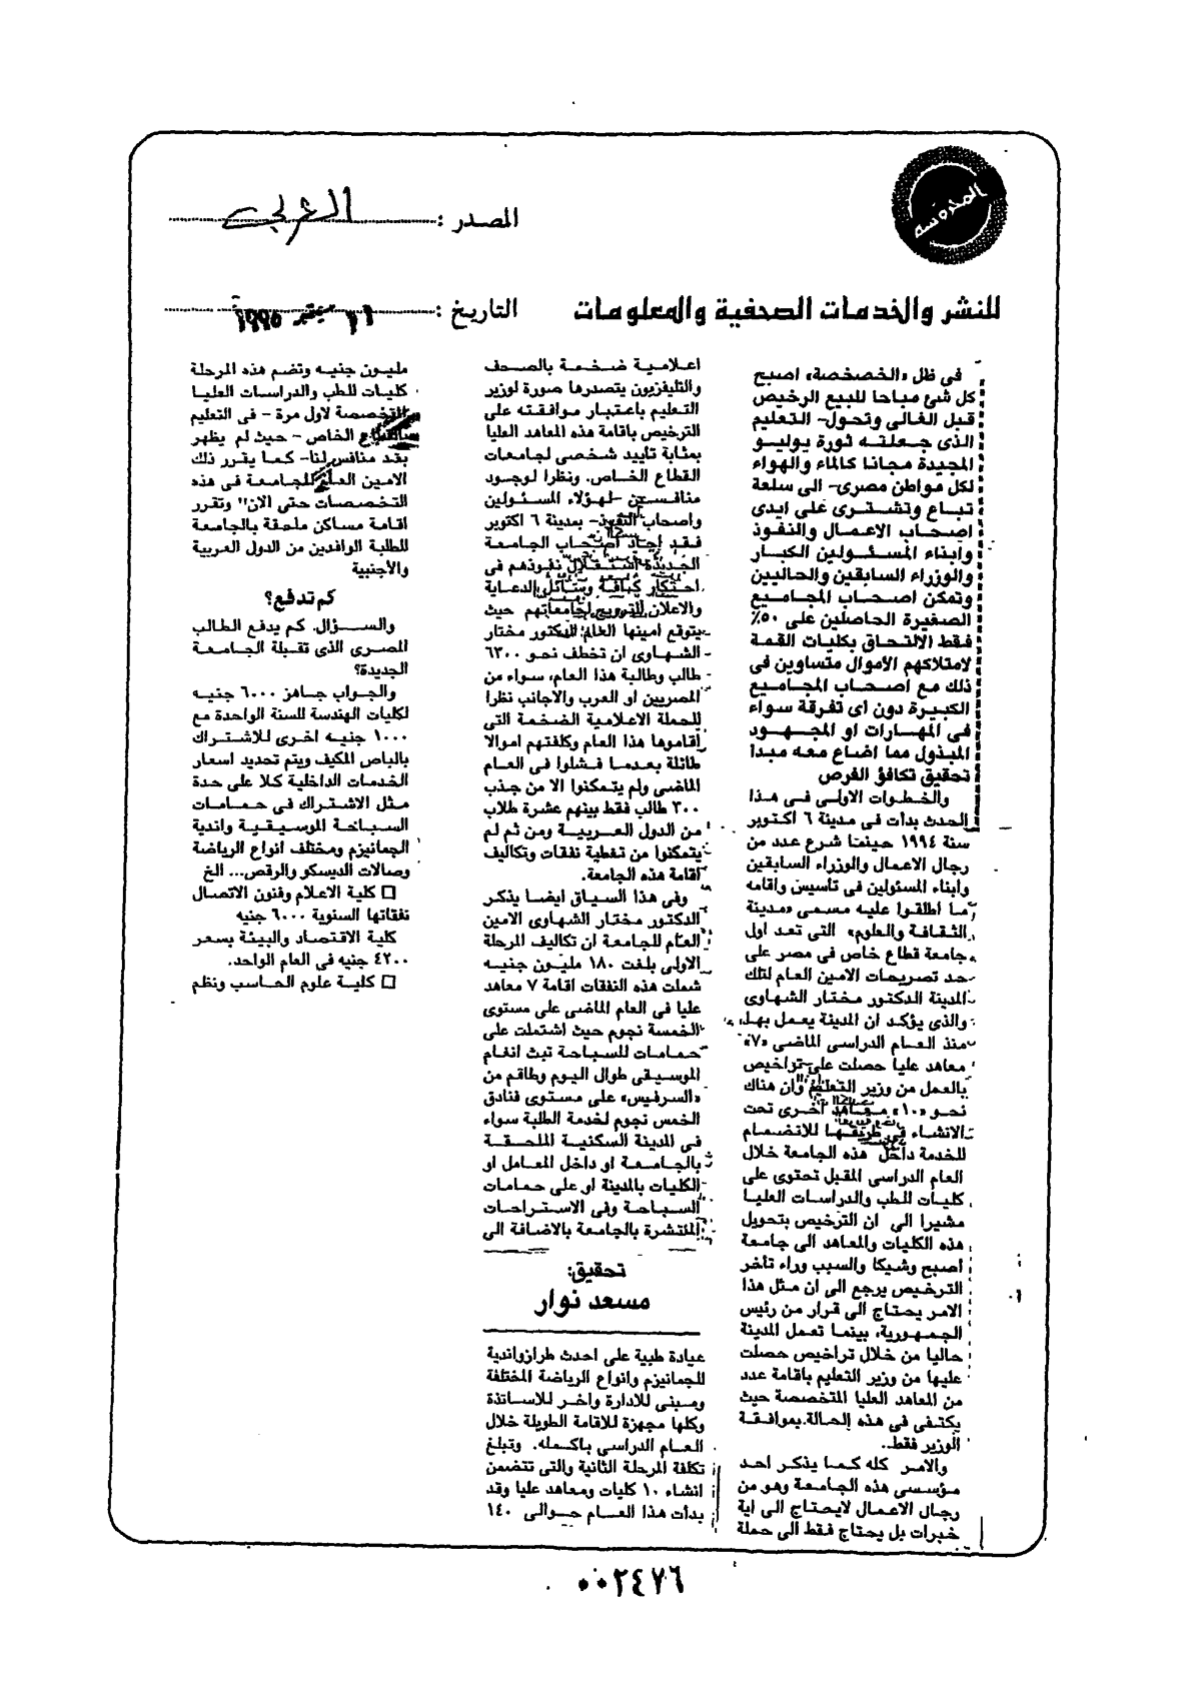 المدرسة
المصدر : العربى
للنشر والخدمات الصحفية والمعلومات
التاريخ : ١١ سبتمبر ١٩٩٥
فى ظل «الخصخصة» اصبح
كل شئ مباحا للبيع الرخيص
قبل الغالى وتحول- التعليم
الذى جعلته ثورة يوليو
المجيدة مجانا كالماء والهواء
لكل مواطن مصرى- الى سلعة
تباع وتشترى على ايدى
اصحاب الاعمال والنفوذ
وابناء المسئولين الكبار
والوزراء السابقين والحاليين
وتمكن اصحاب المجاميع
الصغيرة الحاصلين على ٥٠٪
فقط الالتحاق بكليات القمة
لامتلاكهم الأموال متساوين فى
ذلك مع اصحاب المجاميع
الكبيرة دون اى تفرقة سواء
فى المهارات او المجهود
المبذول مما اضاع معه مبدأ
تحقيق تكافؤ الفرص
والخطوات الاولى فى هذا
الحدث بدأت فى مدينة ٦ اكتوبر
سنة ١٩٩٤ حينما شرع عدد من
رجال الاعمال والوزراء السابقين
وابناء المسئولين فى تأسيس واقامه
ما اطلقوا عليه مسمى «مدينة
الثقافة والعلوم» التى تعد اول
جامعة قطاع خاص فى مصر على
حد تصريحات الامين العام لتلك
المدينة الدكتور مختار الشهاوى
والذى يؤكد ان المدينة يعمل بها
منذ العام الدراسى الماضى «٧»
معاهد عليا حصلت على تراخيص
بالعمل من وزير التعليم وان هناك
نحو «١٠» معاهد أخرى تحت
الانشاء فى طريقها للانضمام
للخدمة داخل هذه الجامعة خلال
العام الدراسى المقبل تحتوى على
كليات للطب والدراسات العليا
مشيرا الى ان الترخيص بتحويل
هذه الكليات والمعاهد الى جامعة
أصبح وشيكا والسبب وراء تأخر
الترخيص يرجع الى ان مثل هذا
الامر يحتاج الى قرار من رئيس
الجمهورية، بينما تعمل المدينة
حاليا من خلال تراخيص حصلت
عليها من وزير التعليم باقامة عدد
من المعاهد العليا المتخصصة حيث
يكتفى فى هذه الحالة بموافقة
الوزير فقط..
والامر كله كما يذكر احد
مؤسسى هذه الجامعة وهو من
رجال الاعمال لايحتاج الى اية
خبرات بل يحتاج فقط الى حملة
اعلامية ضخمة بالصحف
والتليفزيون يتصدرها صورة لوزير
التعليم باعتبار موافقته على
الترخيص باقامة هذه المعاهد العليا
بمثابة تأييد شخصى لجامعات
القطاع الخاص. ونظرا لوجود
منافسين لهؤلاء المسئولين
واصحاب النفوذ- بمدينة ٦ اكتوبر
فقد اجاد اصحاب الجامعة
الجديدة استغلال نفوذهم فى
احتكار كافة وسائل الدعاية
والاعلان للترويج لجامعاتهم حيث
يتوقع امينها العام الدكتور مختار
الشهاوى ان تخطف نحو ٦٣٠٠
طالب وطالبة هذا العام، سواء من
المصريين او العرب والاجانب نظرا
للحملة الاعلامية الضخمة التى
أقاموها هذا العام وكلفتهم اموالا
طائلة بعدما فشلوا فى العام
الماضى ولم يتمكنوا الا من جذب
٣٠٠ طالب فقط بينهم عشرة طلاب
من الدول العربية ومن ثم لم
يتمكنوا من تغطية نفقات وتكاليف
أقامة هذه الجامعة.
وفى هذا السياق ايضا يذكر
الدكتور مختار الشهاوى الامين
العام للجامعة ان تكاليف المرحلة
الاولى بلغت ١٨٠ مليون جنيه
شملت هذه النفقات اقامة ٧ معاهد
عليا فى العام الماضى على مستوى
الخمسة نجوم حيث اشتملت على
حمامات للسباحة تبث انغام
الموسيقى طوال اليوم وطاقم من
«السرفيس» على مستوى فنادق
الخمس نجوم لخدمة الطلبة سواء
فى المدينة السكنية الملحقة
بالجامعة او داخل المعامل او
الكليات بالمدينة او على حمامات
السباحة وفى الاستراحات
المنتشرة بالجامعة بالاضافة الى
تحقيق:
مسعد نوار
عيادة طبية على احدث طراز واندية
للجمانيزم وانواع الرياضة المختلفة
ومبنى للادارة واخر للاساتذة
وكلها مجهزة للاقامة الطويلة خلال
العام الدراسى باكمله. وتبلغ
تكلفة المرحلة الثانية والتى تتضمن
انشاء ١٠ كليات ومعاهد عليا وقد
بدأت هذا العام حوالى ١٤٠
مليون جنيه وتضم هذه المرحلة
كليات للطب والدراسات العليا
المتخصصة لاول مرة - فى التعليم
بالقطاع الخاص - حيث لم يظهر
بعد منافس لنا- كما يقرر ذلك
الامين العام للجامعة فى هذه
التخصصات حتى الان" وتقرر
اقامة مساكن ملحقة بالجامعة
للطلبة الوافدين من الدول العربية
والأجنبية
كم تدفع؟
والسؤال. كم يدفع الطالب
المصرى الذى تقبلة الجامعة
الجديدة؟
والجواب جاهز ٦٠٠٠ جنيه
لكليات الهندسة للسنة الواحدة مع
١٠٠٠ جنيه اخرى للاشتراك
بالباص المكيف ويتم تحديد اسعار
الخدمات الداخلية كلا على حدة
مثل الاشتراك فى حمامات
السباحة الموسيقية واندية
الجمانيزم ومختلف انواع الرياضة
وصالات الديسكو والرقص... الخ
□ كلية الاعلام وفنون الاتصال
نفقاتها السنوية ٦٠٠٠ جنيه
كلية الاقتصاد والبيئة بسعر
٤٢٠٠ جنيه فى العام الواحد.
□ كلية علوم الحاسب ونظم
٠٠٢٤٧٦